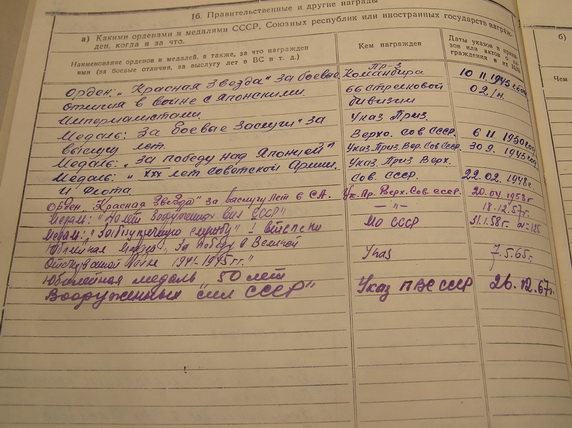 16. Правительственные и другие награды
а) Какими орденами и медалями СССР, Союзных республик или иностранных государств награжден, когда и за что.
б)
Наименование орденов и медалей, а также, за что награжден
ими (за боевые отличия, за выслугу лет в ВС и т. д.)
Кем награжден
Даты указов и
Кем
Орден: „Красная Звезда" за боевые
отличия в войне с японскими
Империалистами.
Пр-з
Командира
66 стрелковой
дивизии
10.11.1945
02/н.
Медаль: „За боевые Заслуги" за
выслугу лет.
Указ През.
Верхо. Сов СССР.
6 11 1950
Медаль: „За победу над Японией"
Указ През Вер. Сов СССР
30.9.1945
Медаль: „XXX лет Советской Армии
и Флота
Указ През Верх.
Сов. СССР
22.02.1948 г.
Орден „Красная Звезда" за выслугу лет в С.А.
Ук. Пр. Верх. Сов. СССР.
20.04.1953 г
Медаль: "40 лет Вооруженных Сил СССР"
— " —
18.12.57 г.
Медаль: "За безупречную службу" I степени
МО СССР
31.1.58 г.
Юбилейная медаль: За победу в Великой
Отечественной войне 1941-1945 г г."
Указ
7.5.65 г.
Юбилейная медаль "50 лет
Вооруженных сил СССР"
Указ ПВС СССР
26.12.67 г.